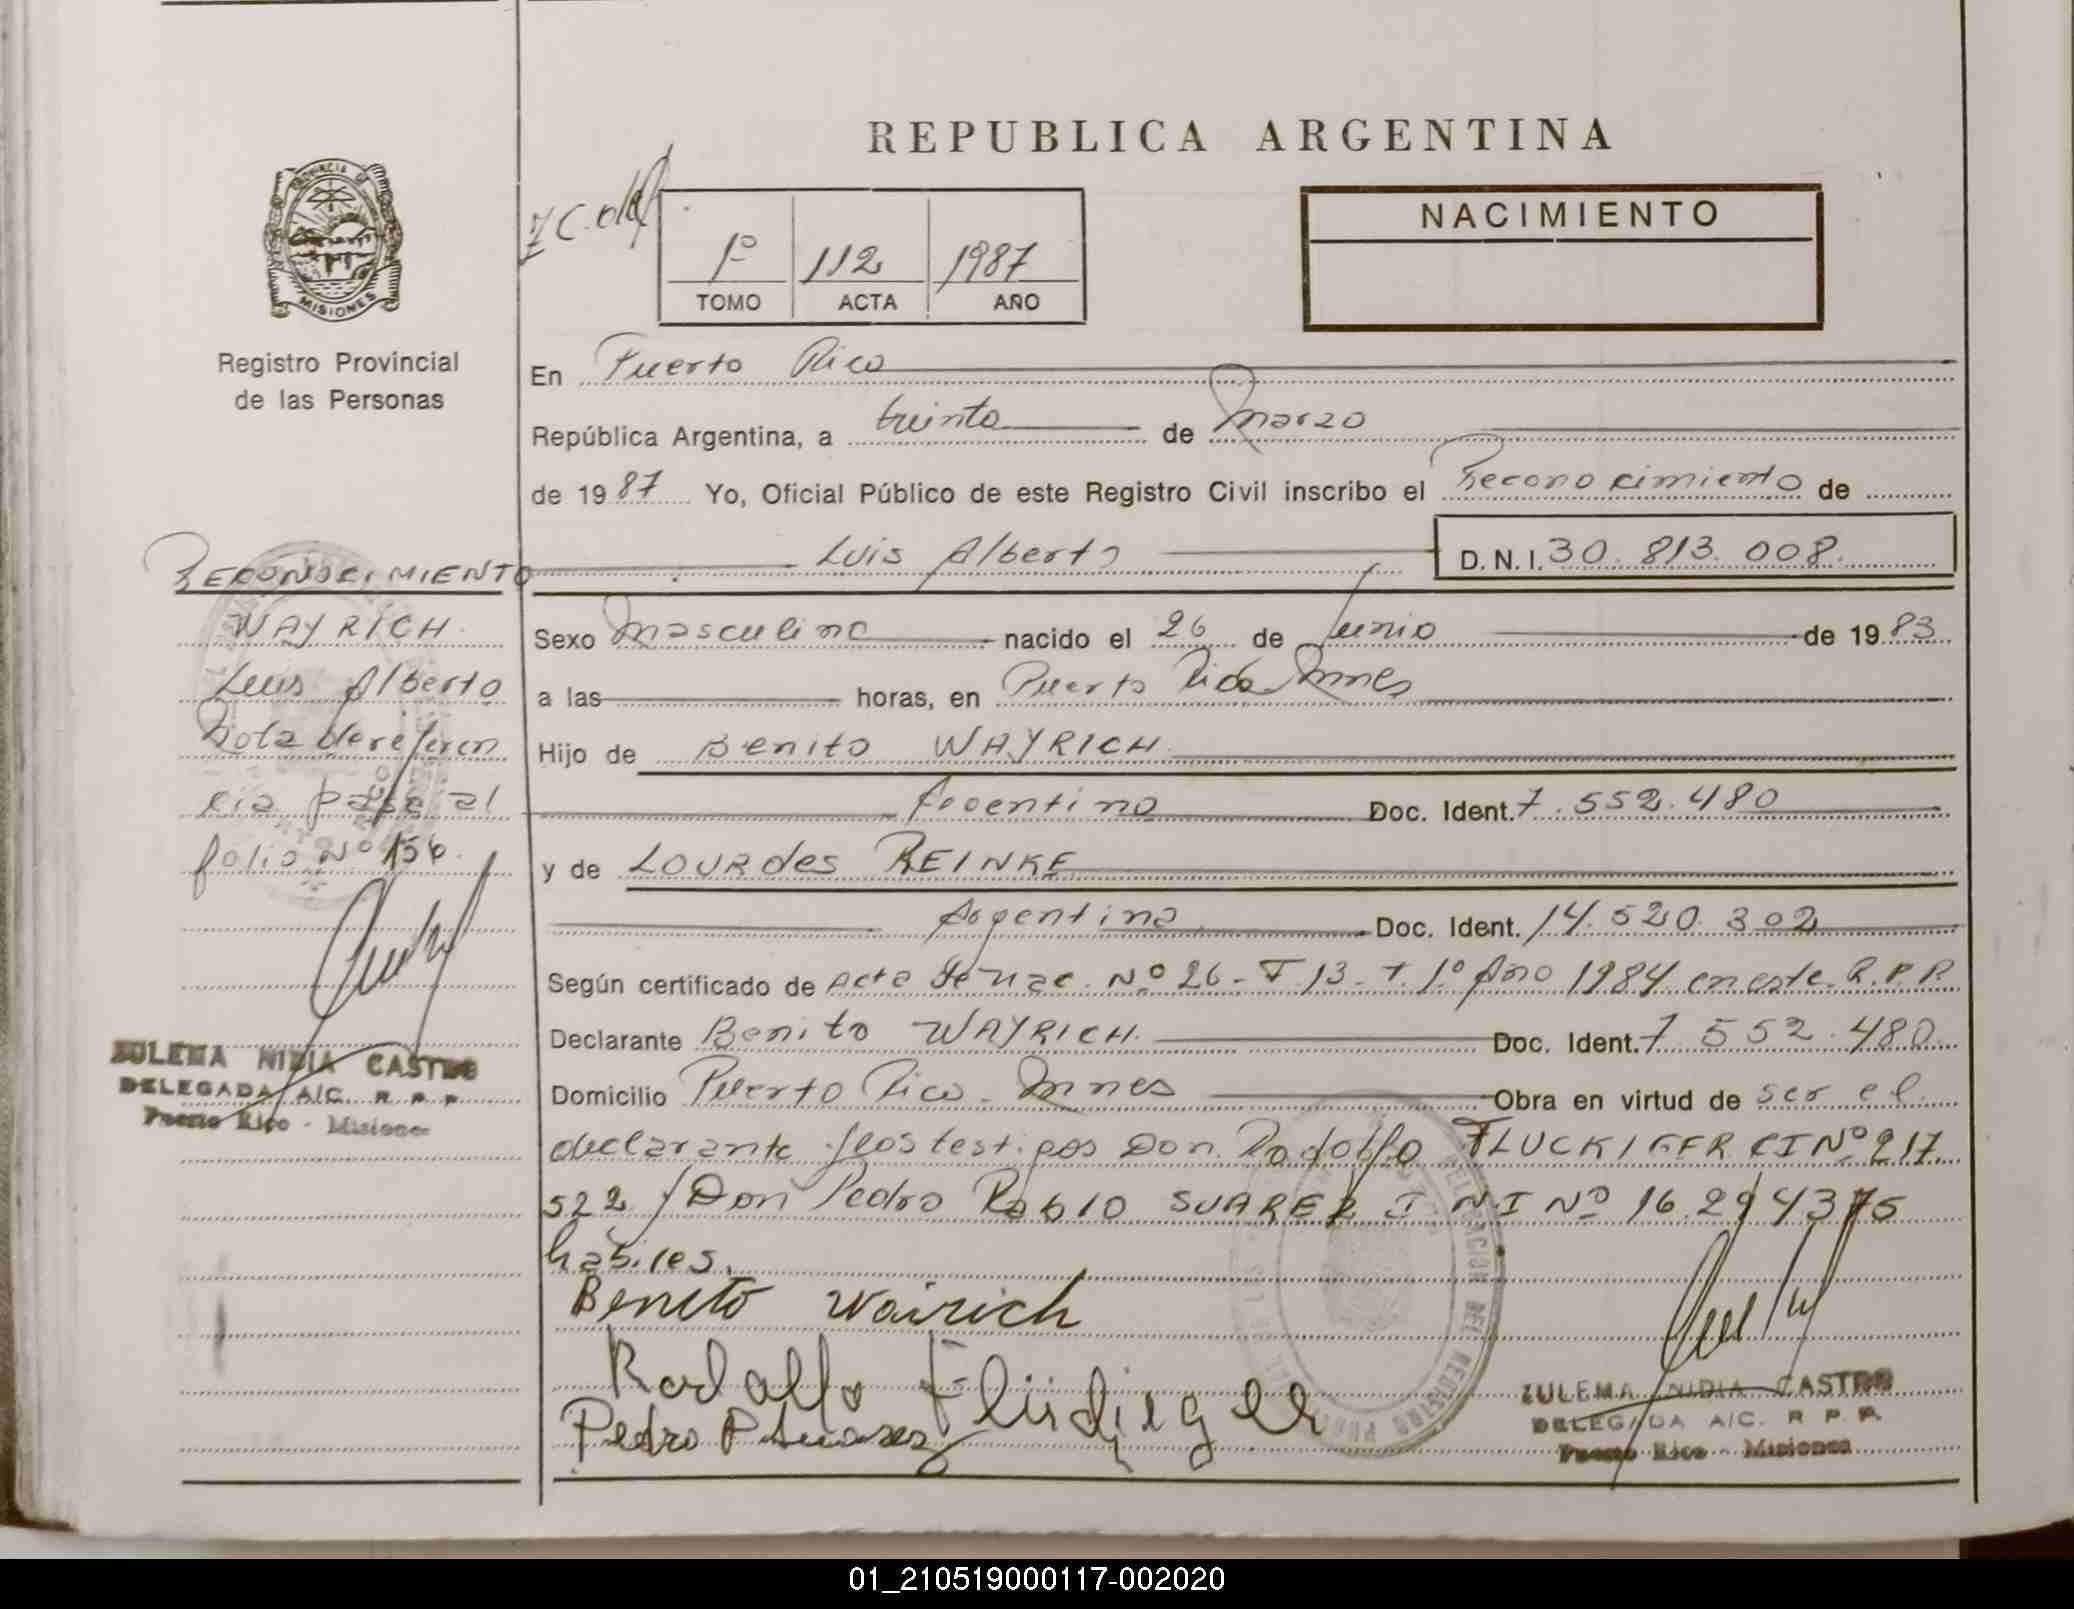 REPUBLICA ARGENTINA
PROVINCIA DE
MISIONES
1º 112 1987
TOMO ACTA AÑO
NACIMIENTO
Registro Provincial
de las Personas
En Puerto Rico
República Argentina, a treinta de marzo
de 1987 Yo, Oficial Público de este Registro Civil inscribo el Reconocimiento de
Luis Alberto D.N.I. 30.813.008.
RECONOCIMIENTO
WAYRICH
Luis Alberto
Nota de referen
cia pase al
folio Nº 156.
ZULEMA NIDIA CASTRO
DELEGADA A/C. R P P
Puerto Rico - Misiones
Sexo masculino nacido el 26 de Junio de 1983
a las horas, en Puerto Rico Mnes
Hijo de Benito WAYRICH
Argentino Doc. Ident. 7.552.480
y de LOURDES REINKE
Argentina Doc. Ident. 14.520.302
Según certificado de Acta de nac. Nº 26 - F 13 - T. 1º Año 1984 en este R.P.P.
Declarante Benito WAYRICH. Doc. Ident. 7.552.480
Domicilio Puerto Rico - Mnes Obra en virtud de ser el
declarante y los testigos Don Rodolfo FLUCKIGER CI Nº 217
522 y Don Pedro Pablo SUAREZ NI Nº 16.294375
habiles.
Benito Wairich
Rodolfo Flückiger
Pedro P Suarez
ZULEMA NIDIA CASTRO
DELEGADA A/C. R P P.
Puerto Rico - Misiones
01_210519000117-002020